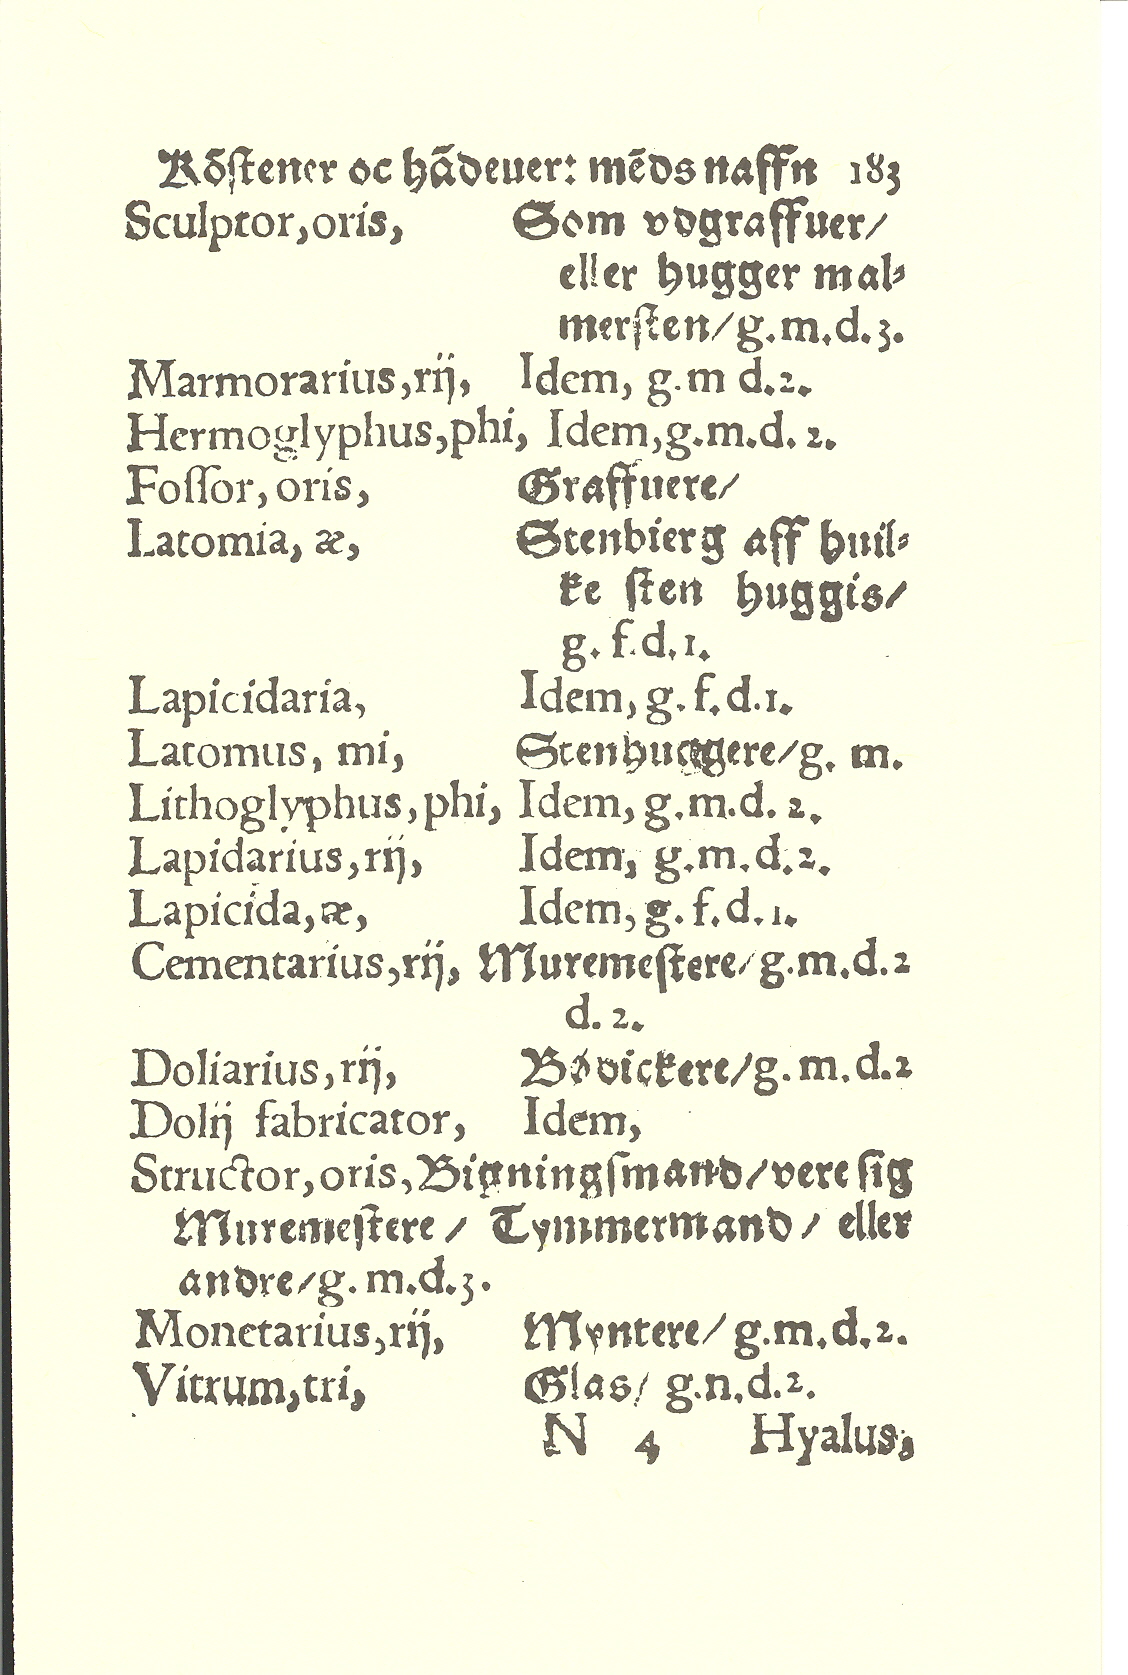 Kōstener oc hādeuer: mēds naffn 183
Sculptor, oris, Som vdgraffuer/
eller hugger mal⸗
mersten/ g.m.d.3.
Marmorarius, rij, Idem, g.m d.2.
Hermoglyphus, phi, Idem, g.m.d. 2.
Fossor, oris, Graffuere/
Latomia, æ, Stenbierg aff huil⸗
ke sten huggis/
g. f.d.1.
Lapicidaria, Idem, g. f.d.1.
Latomus, mi, Stenhuggere/ g. m.
Lithoglyphus, phi, Idem, g.m.d. 2.
Lapidarius, rij, Idem, g.m.d.2.
Lapicida, æ, Idem, g. f.d.1.
Cementarius, rij, Muremestere/ g.m.d.2
d. 2.
Doliarius, rij, Bødickere/ g.m.d.2
Dolij fabricator, Idem,
Structor, oris, Bigningsmand/ vere sig
Muremestere/ Tymmermand/ eller
andre/ g.m.d.3.
Monetarius, rij, Myntere/ g.m.d.2.
Vitrum, tri, Glas/ g.n.d.2.
N 4 Hyalus,